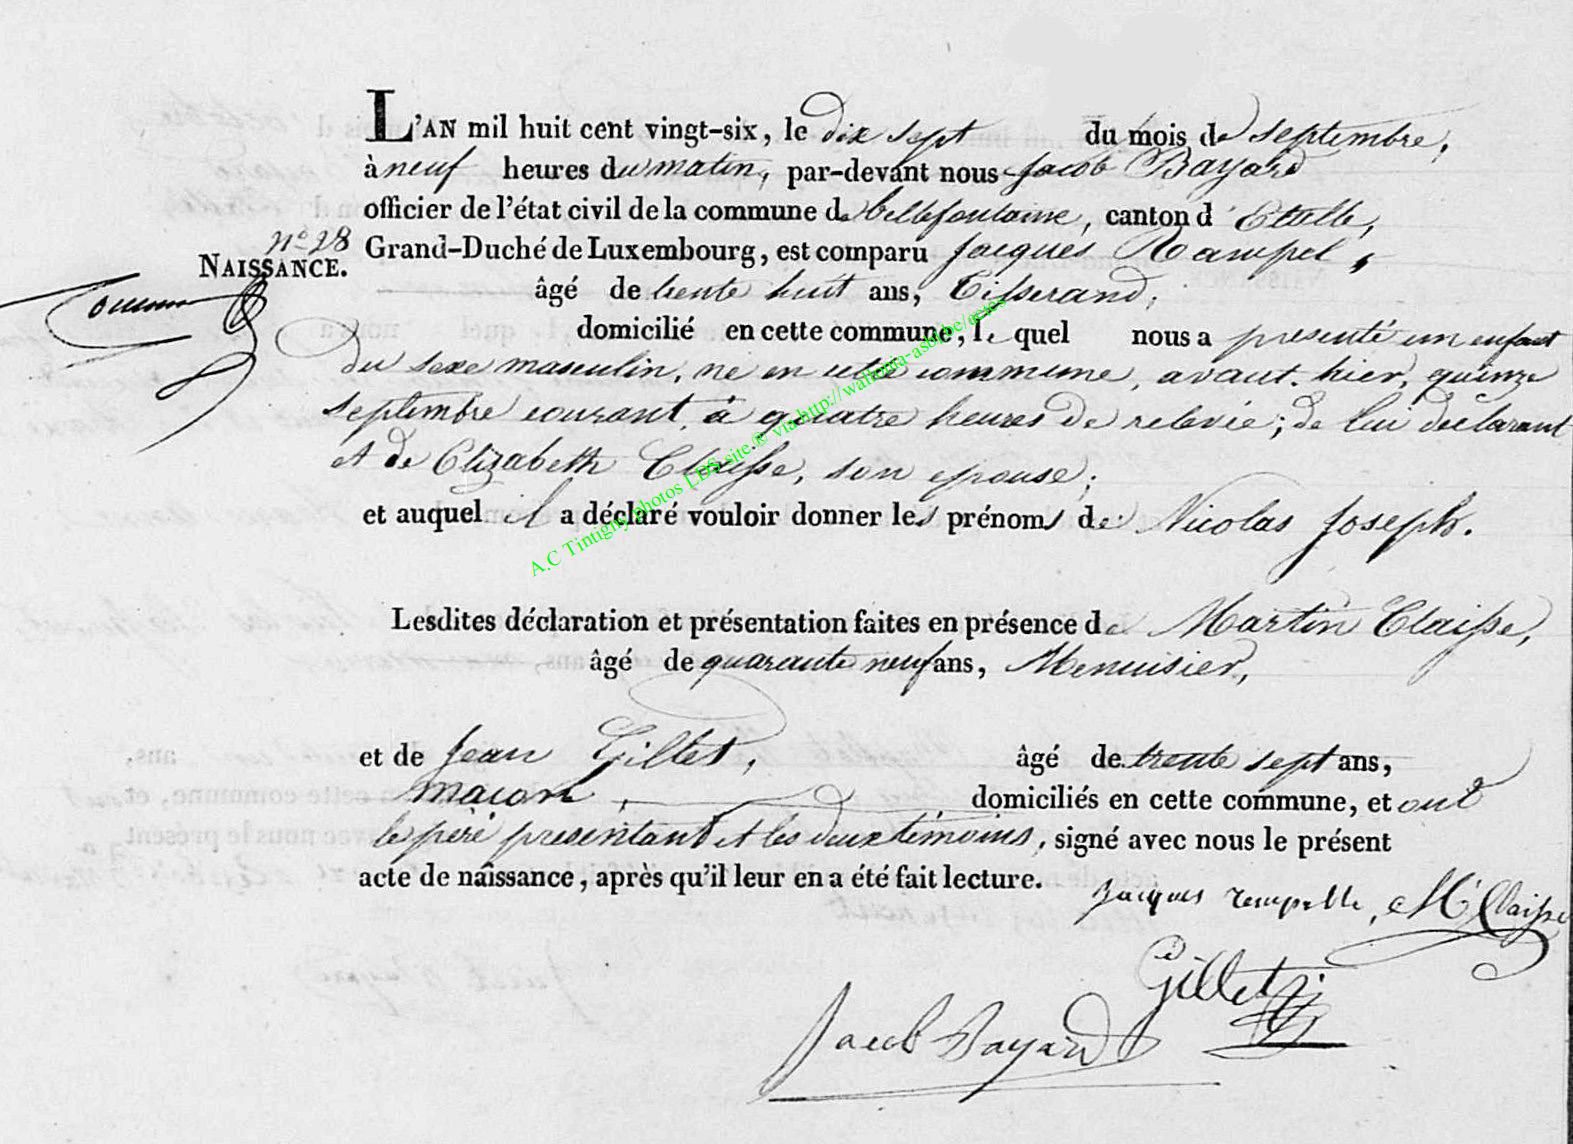 L'AN mil huit cent vingt-six, le dix sept du mois de septembre,
à neuf heures du matin, par-devant nous Jacob Bayard
officier de l'état civil de la commune de bellefontaine, canton d'Etalle,
n° 28
NAISSANCE.
Grand-Duché de Luxembourg, est comparu Jacques Rampel,
âgé de trente huit ans, Tisserand,
domicilié en cette commune, lequel nous a presenté un enfant
du sexe masculin, né en cette commune, avant hier, quinze
septembre courant, à quatre heures de relevée; de lui declarant
et de Elizabeth Claisse, son epouse;
et auquel il a déclaré vouloir donner les prénoms de Nicolas Joseph.
A.C Tintigny photos LDS site © via http://wallonia-asbl.be/actes
Lesdites déclaration et présentation faites en présence de Martin Claisse,
âgé de quarante neuf ans, Menuisier,
et de Jean Gillet, âgé de trente sept ans,
maçon, domiciliés en cette commune, et ont
le père presentant et les deux témoins, signé avec nous le présent
acte de naissance, après qu'il leur en a été fait lecture.
Jacques rempelle, M Claisse
Gillet
Jacob Bayard